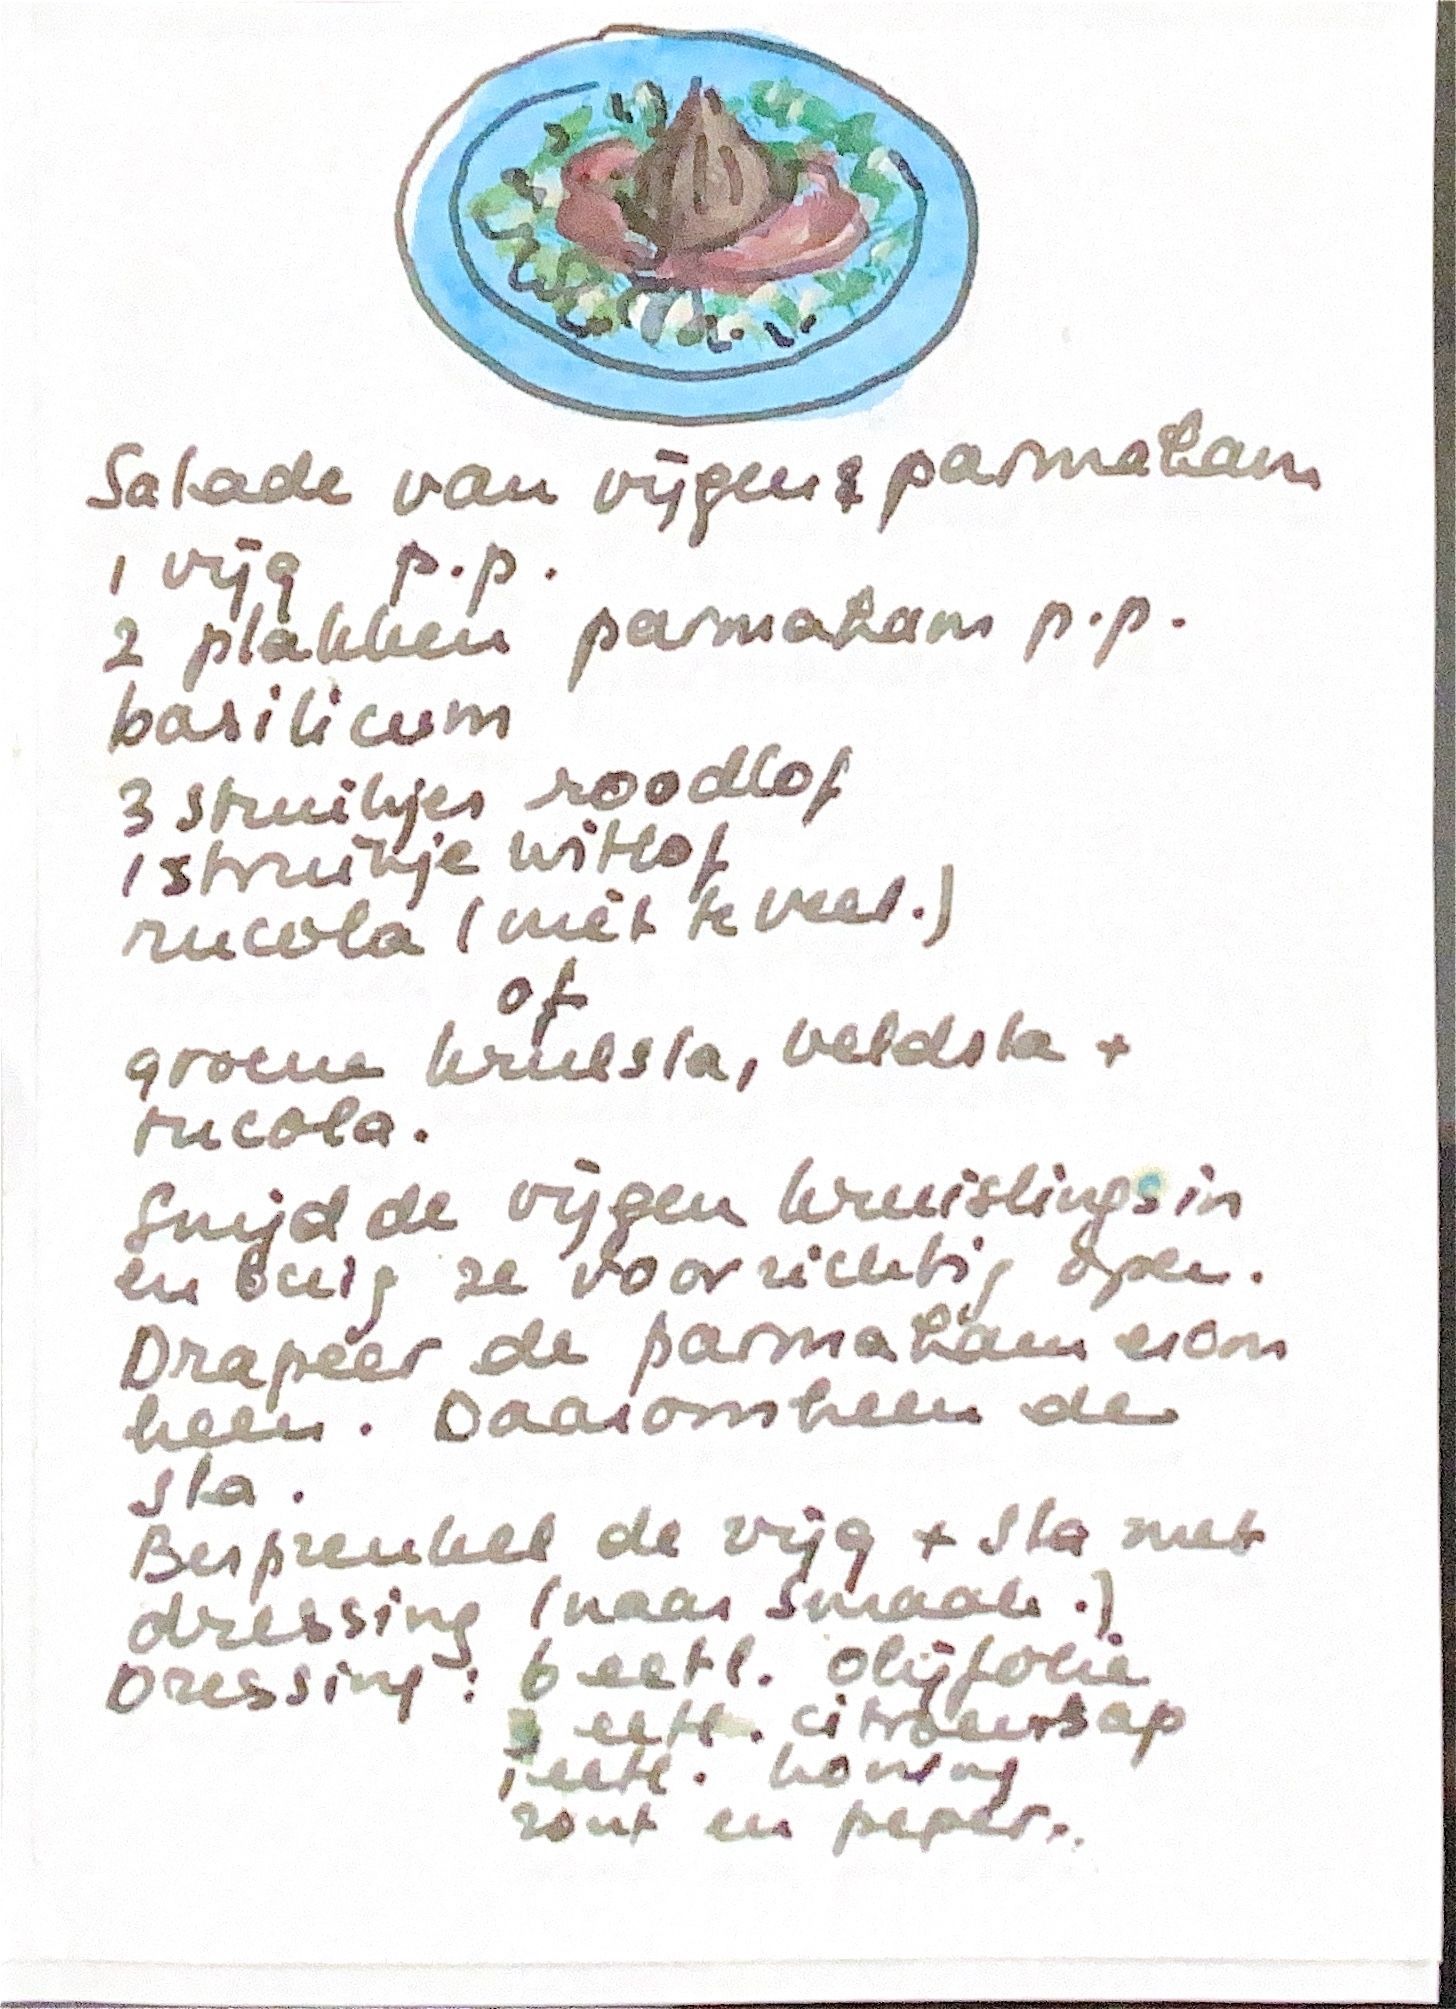 Salade van vijgen & parmaham
1 vijg p.p.
2 plakken parmaham p.p.
basilicum
3 struikjes roodlof
1 struikje witlof
rucola (niet te veel.)
of
groene krulsla, veldsla +
rucola.
Snijd de vijgen kruislings in
en buig ze voorzichtig open.
Drapeer de parmaham erom
heen. Daaromheen de
sla.
Besprenkel de vijg + sla met
dressing (naar smaak.)
Dressing: 6 eetl. olijfolie
eetl. citroensap
1 eetl. honing
zout en peper.